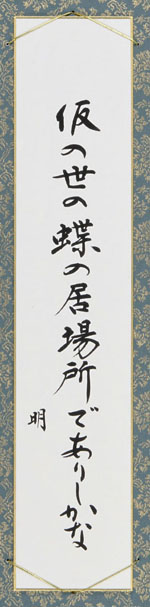 仮の世の蝶の居場所でありしかな
明